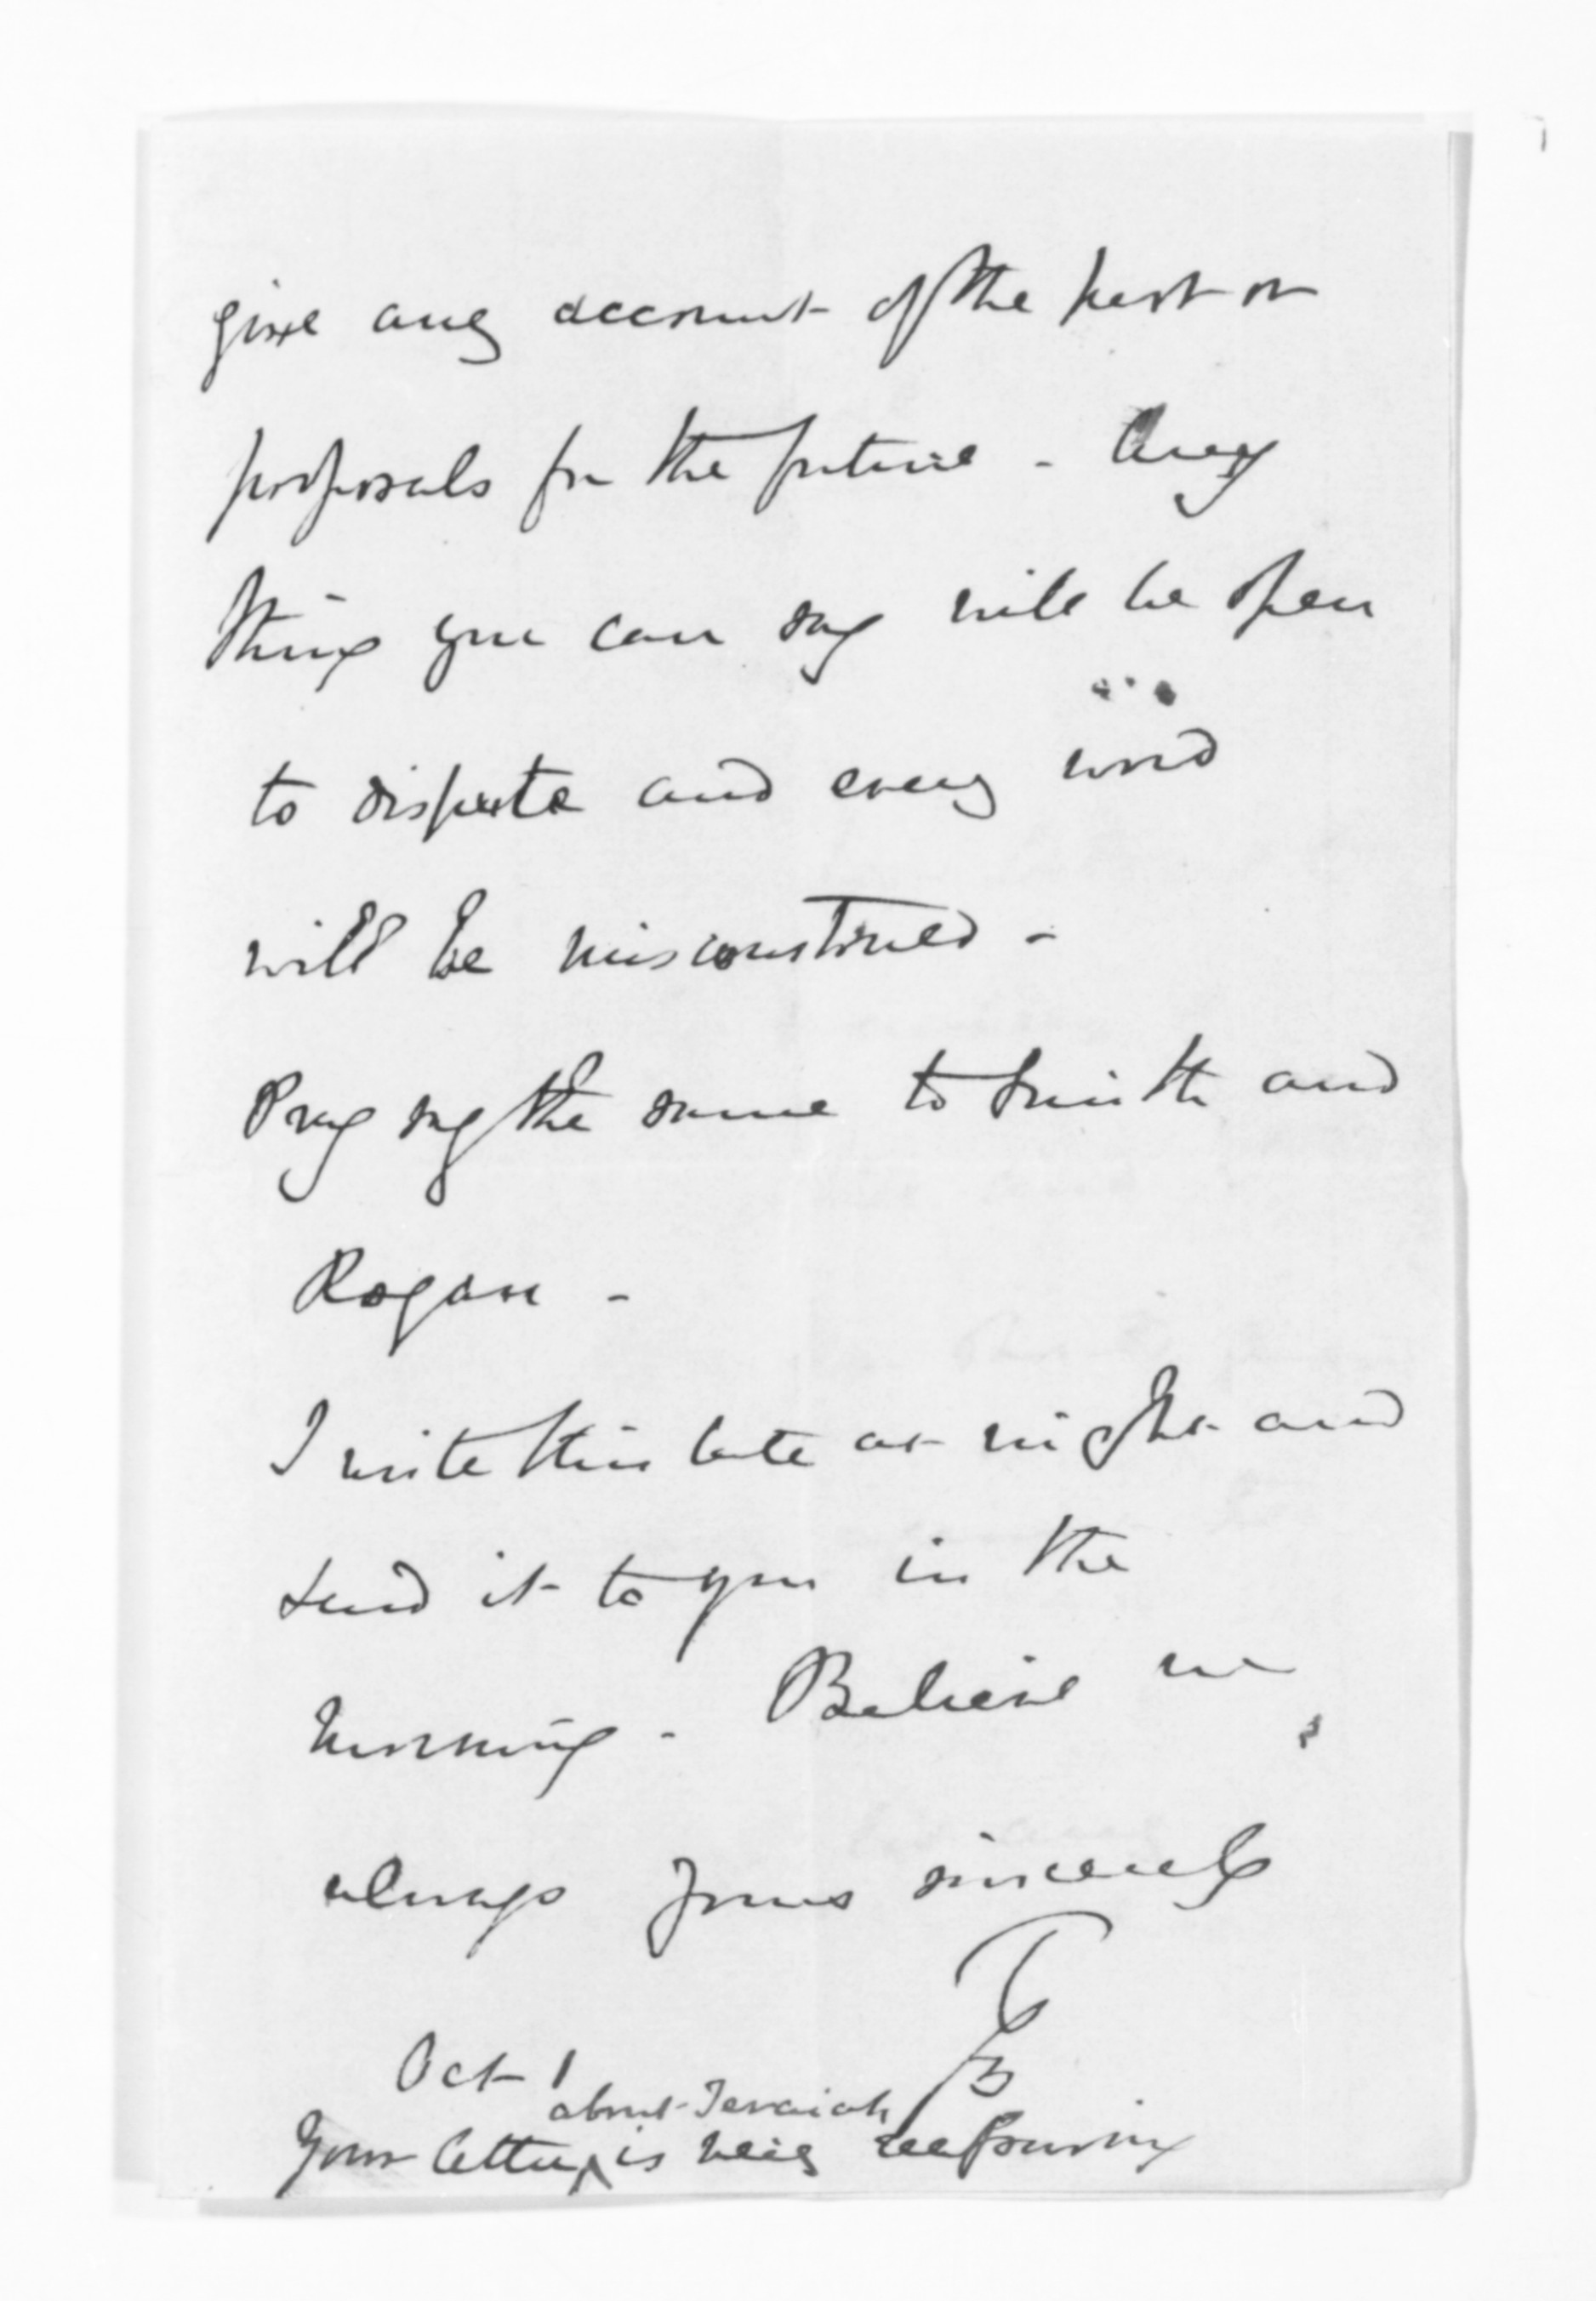 give any account of the past or
proposals for the future - Any
thing you can say will be open
to dispute and every word
will be misconstrued -
Pray say the same to Smith and
Rogan -
I write this late at night and
send it to you in the
morning - Believe me
always yours sincerely
TB
Oct 1
about Teraiah
Your letter ^ is very reassuring